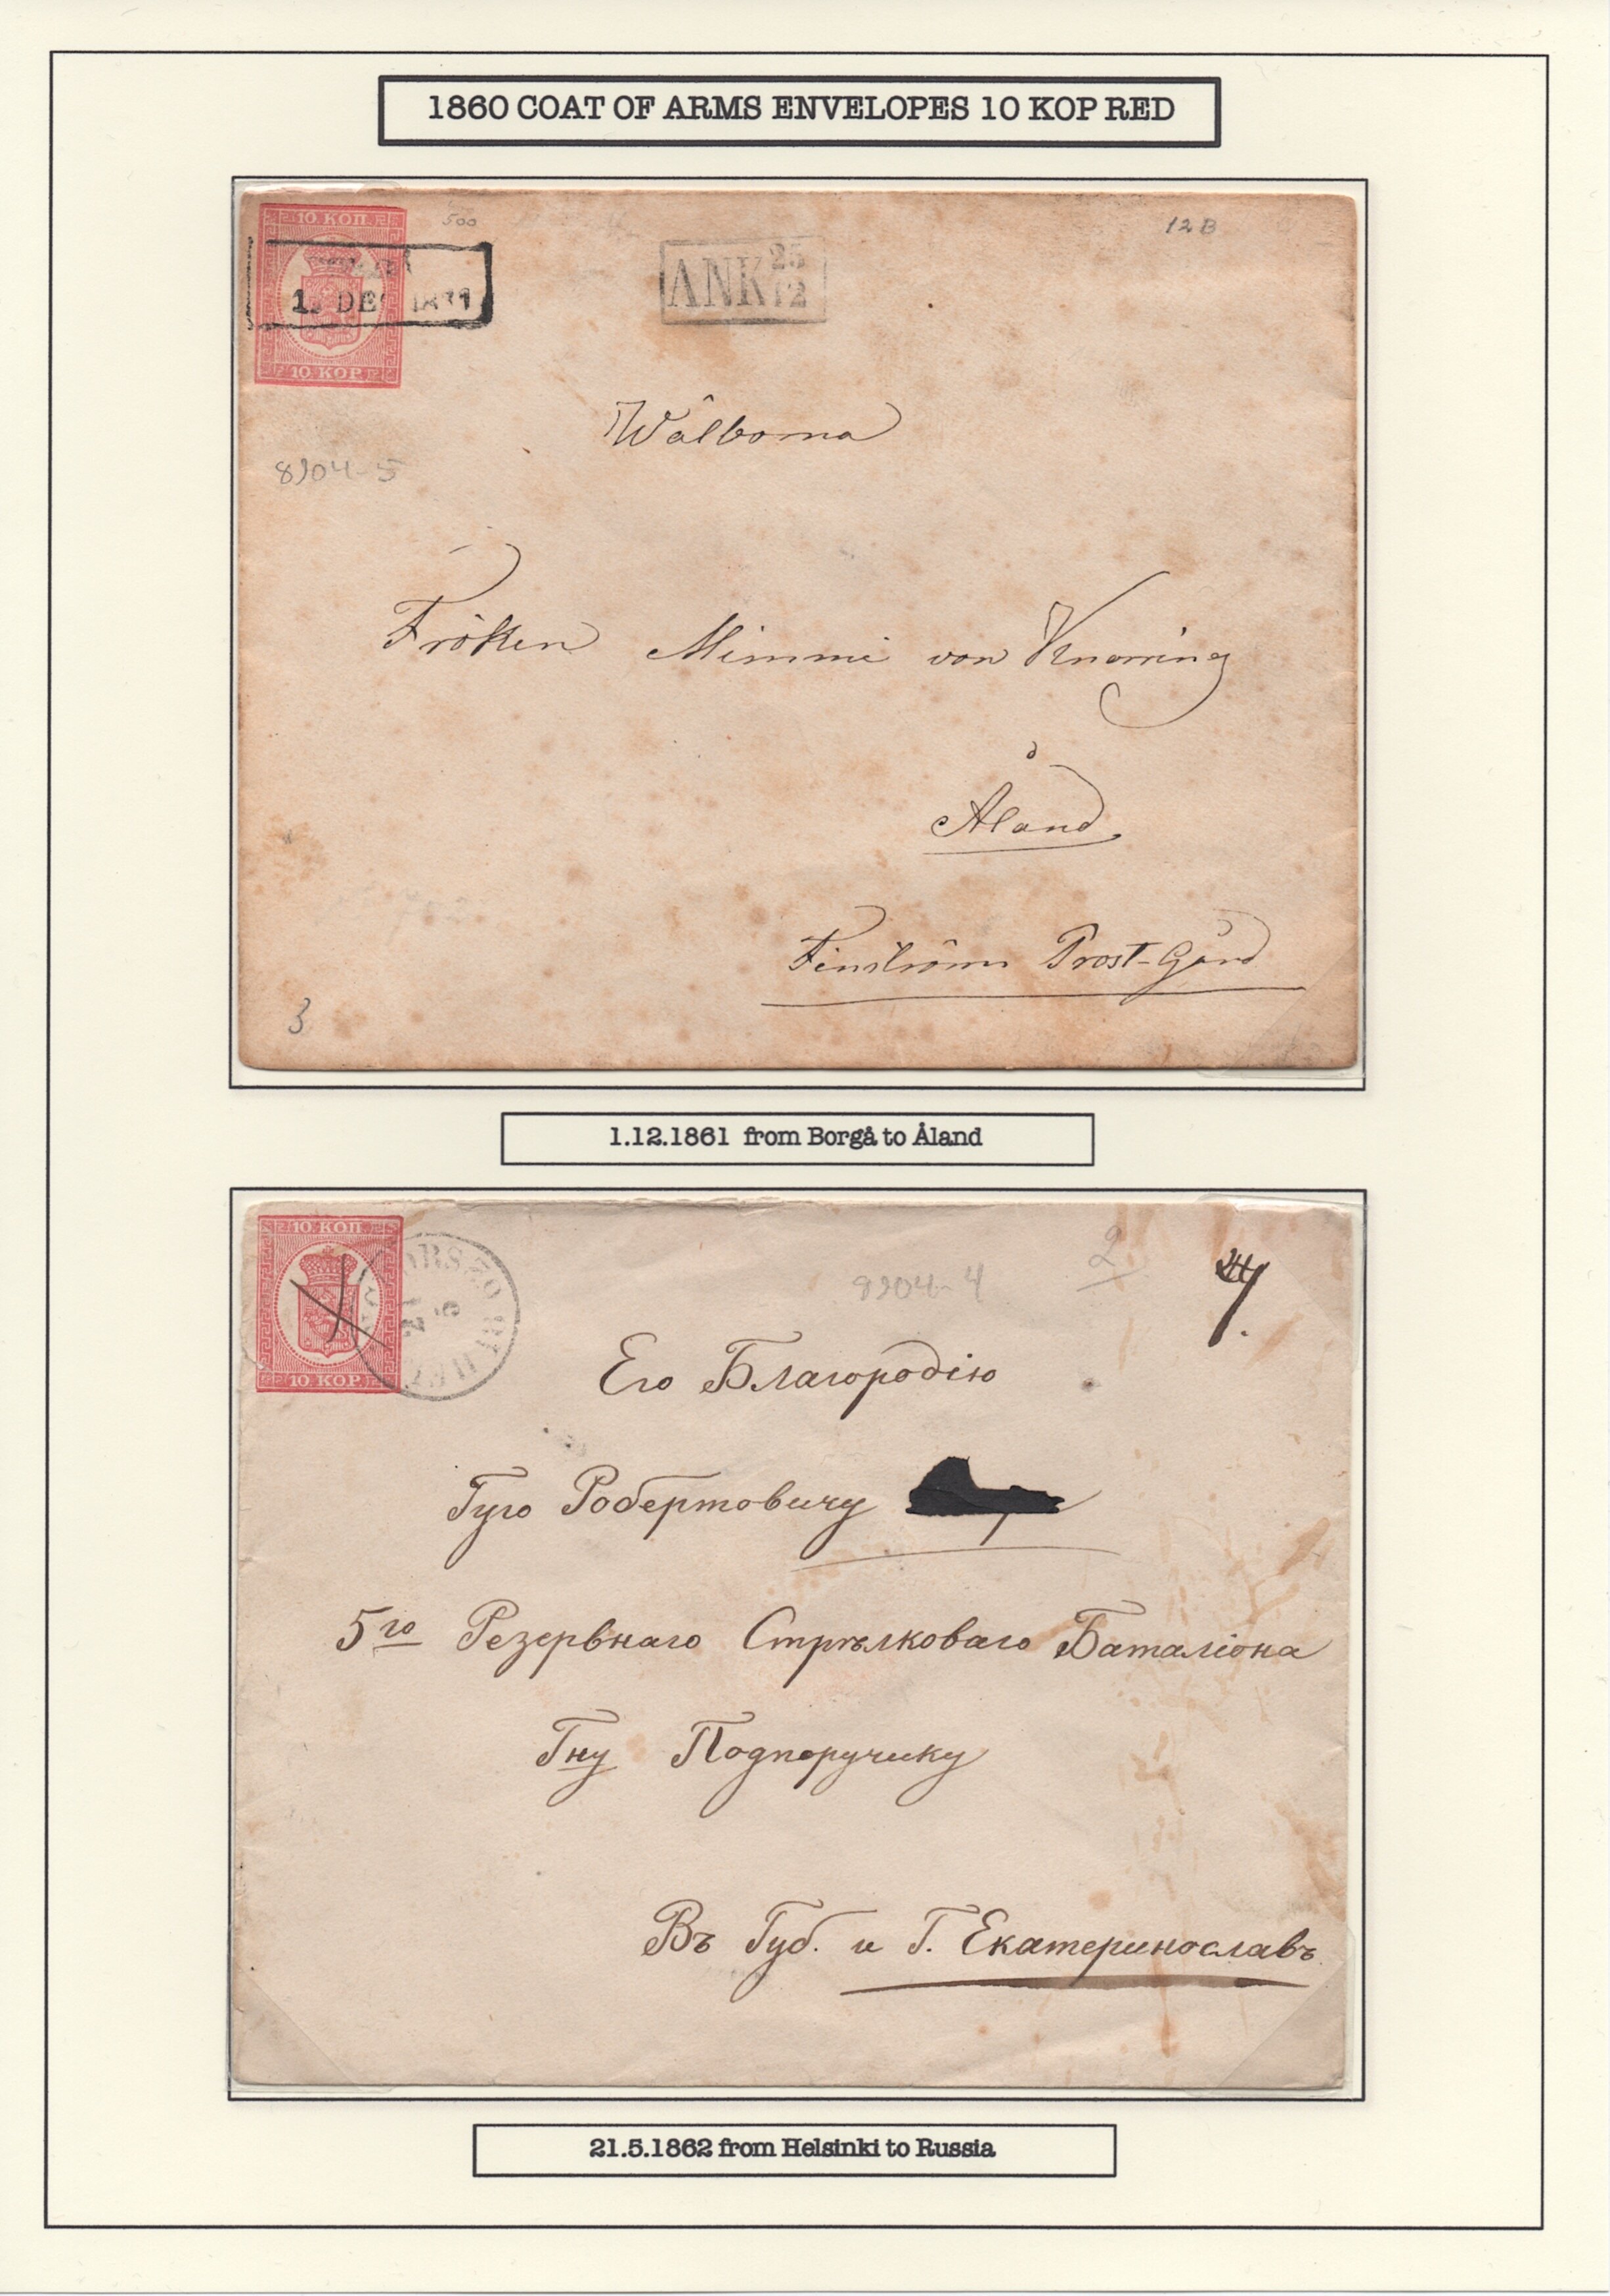 1860 COAT OF ARMS ENVELOPES 10 KOP RED
10 КОП.
500
12 B
ANK 25 12
DEC
10 KOP.
Wälborna
8904-5
Fröken Mimmi von Knorring
Åland
Finström Prost-Gård
3
1.12.1861 from Borgå to Åland
10 КОП.
2
8904-4
10 KOP.
Его Благородію
Гуго Робертовичу
5го Резервнаго Стрѣлковаго Баталіона
Гну Подпоручику
Въ Губ. и Г. Екатеринославъ
21.5.1862 from Helsinki to Russia